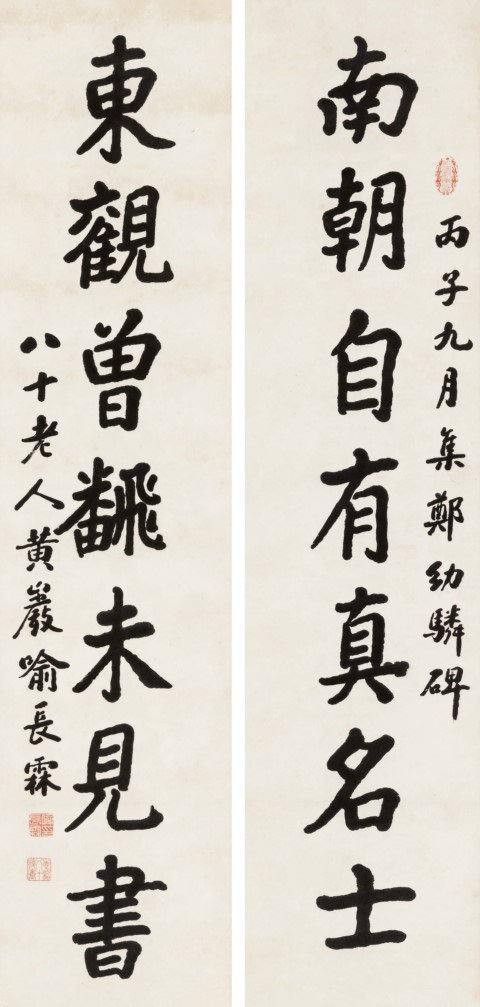 丙子九月集鄭幼驎碑
南朝自有真名士
東觀曾飜未見書
八十老人黃巖喻長霖